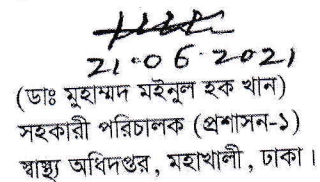 21.06.2021
(ডাঃ মুহাম্মদ মইনুল হক খান)
সহকারী পরিচালক (প্রশাসন-১)
স্বাস্থ্য অধিদপ্তর, মহাখালী, ঢাকা।